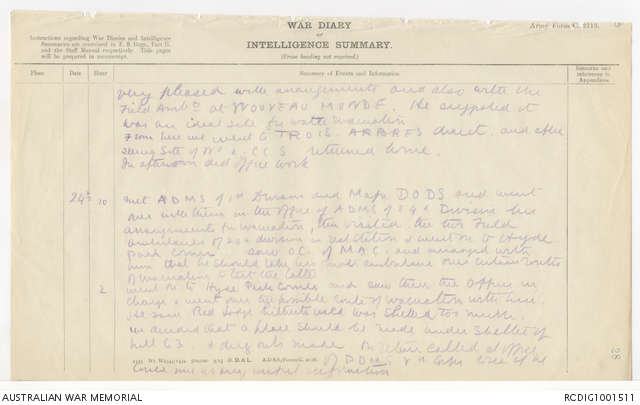 WAR DIARY
or
INTELLIGENCE SUMMARY.
(Erase heading not required.)
Army Form C. 2118.
Instructions regarding War Diaries and Intelligence
Summaries are contained in F. S. Regs., Part II.
and the Staff Manual respectively. Title pages
will be prepared in manuscript.
Place Date Hour Summary of Events and Information Remarks and
references to
Appendices
very pleased with arrangements and also with the
Field Amb at NOUVEAU MONDE. He suggested it
was an ideal site for water evacuation
From here we went to TROIS ARBRES direct, and after
seeing Site of No 2 C C S returned home.
In afternoon did office work
24th 10 met ADMS of 1st Division and Major DODS and went
over with them in the office of ADMS of 24th Division his
arrangements for evacuation, then visited the two Field
ambulances of 24th division in & went on to Hyde
Park Corner saw O.C. of M.A.C. and arranged with
him that he should take his motor ambulance over certain routes
of evacuation to test the
2 went on to Hyde Park Corner and saw there the Officer in
charge & went over the possible route of evacuation with him.
He said Red Lodge hitherto used was shelled too much.
we decided that a place should be made under shelter of
hill 63 & dug outs made. On return called at office
of D.D.M.S. Corps
AUSTRALIAN WAR MEMORIAL
RCDIG1001511